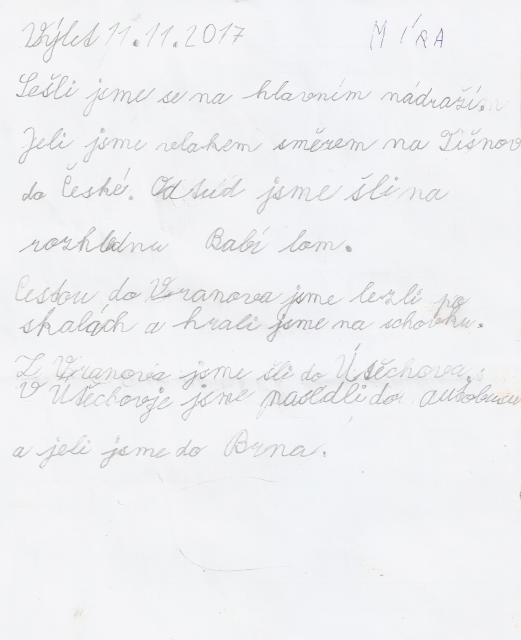 Výlet 11.11.2017 MÍRA
Sešli jsme se na hlavním nádraží.
Jeli jsme vlakem směrem na Tišnov
do České. Odsud jsme šli na
rozhlednu Babí lom.
Cestou do Vranova jsme lezli po
skalách a hrali jsme na schovku.
Z Vranova jsme šli do Útěchova.
V Útěchovje jsme nasedli do autobusu
a jeli jsme do Brna.